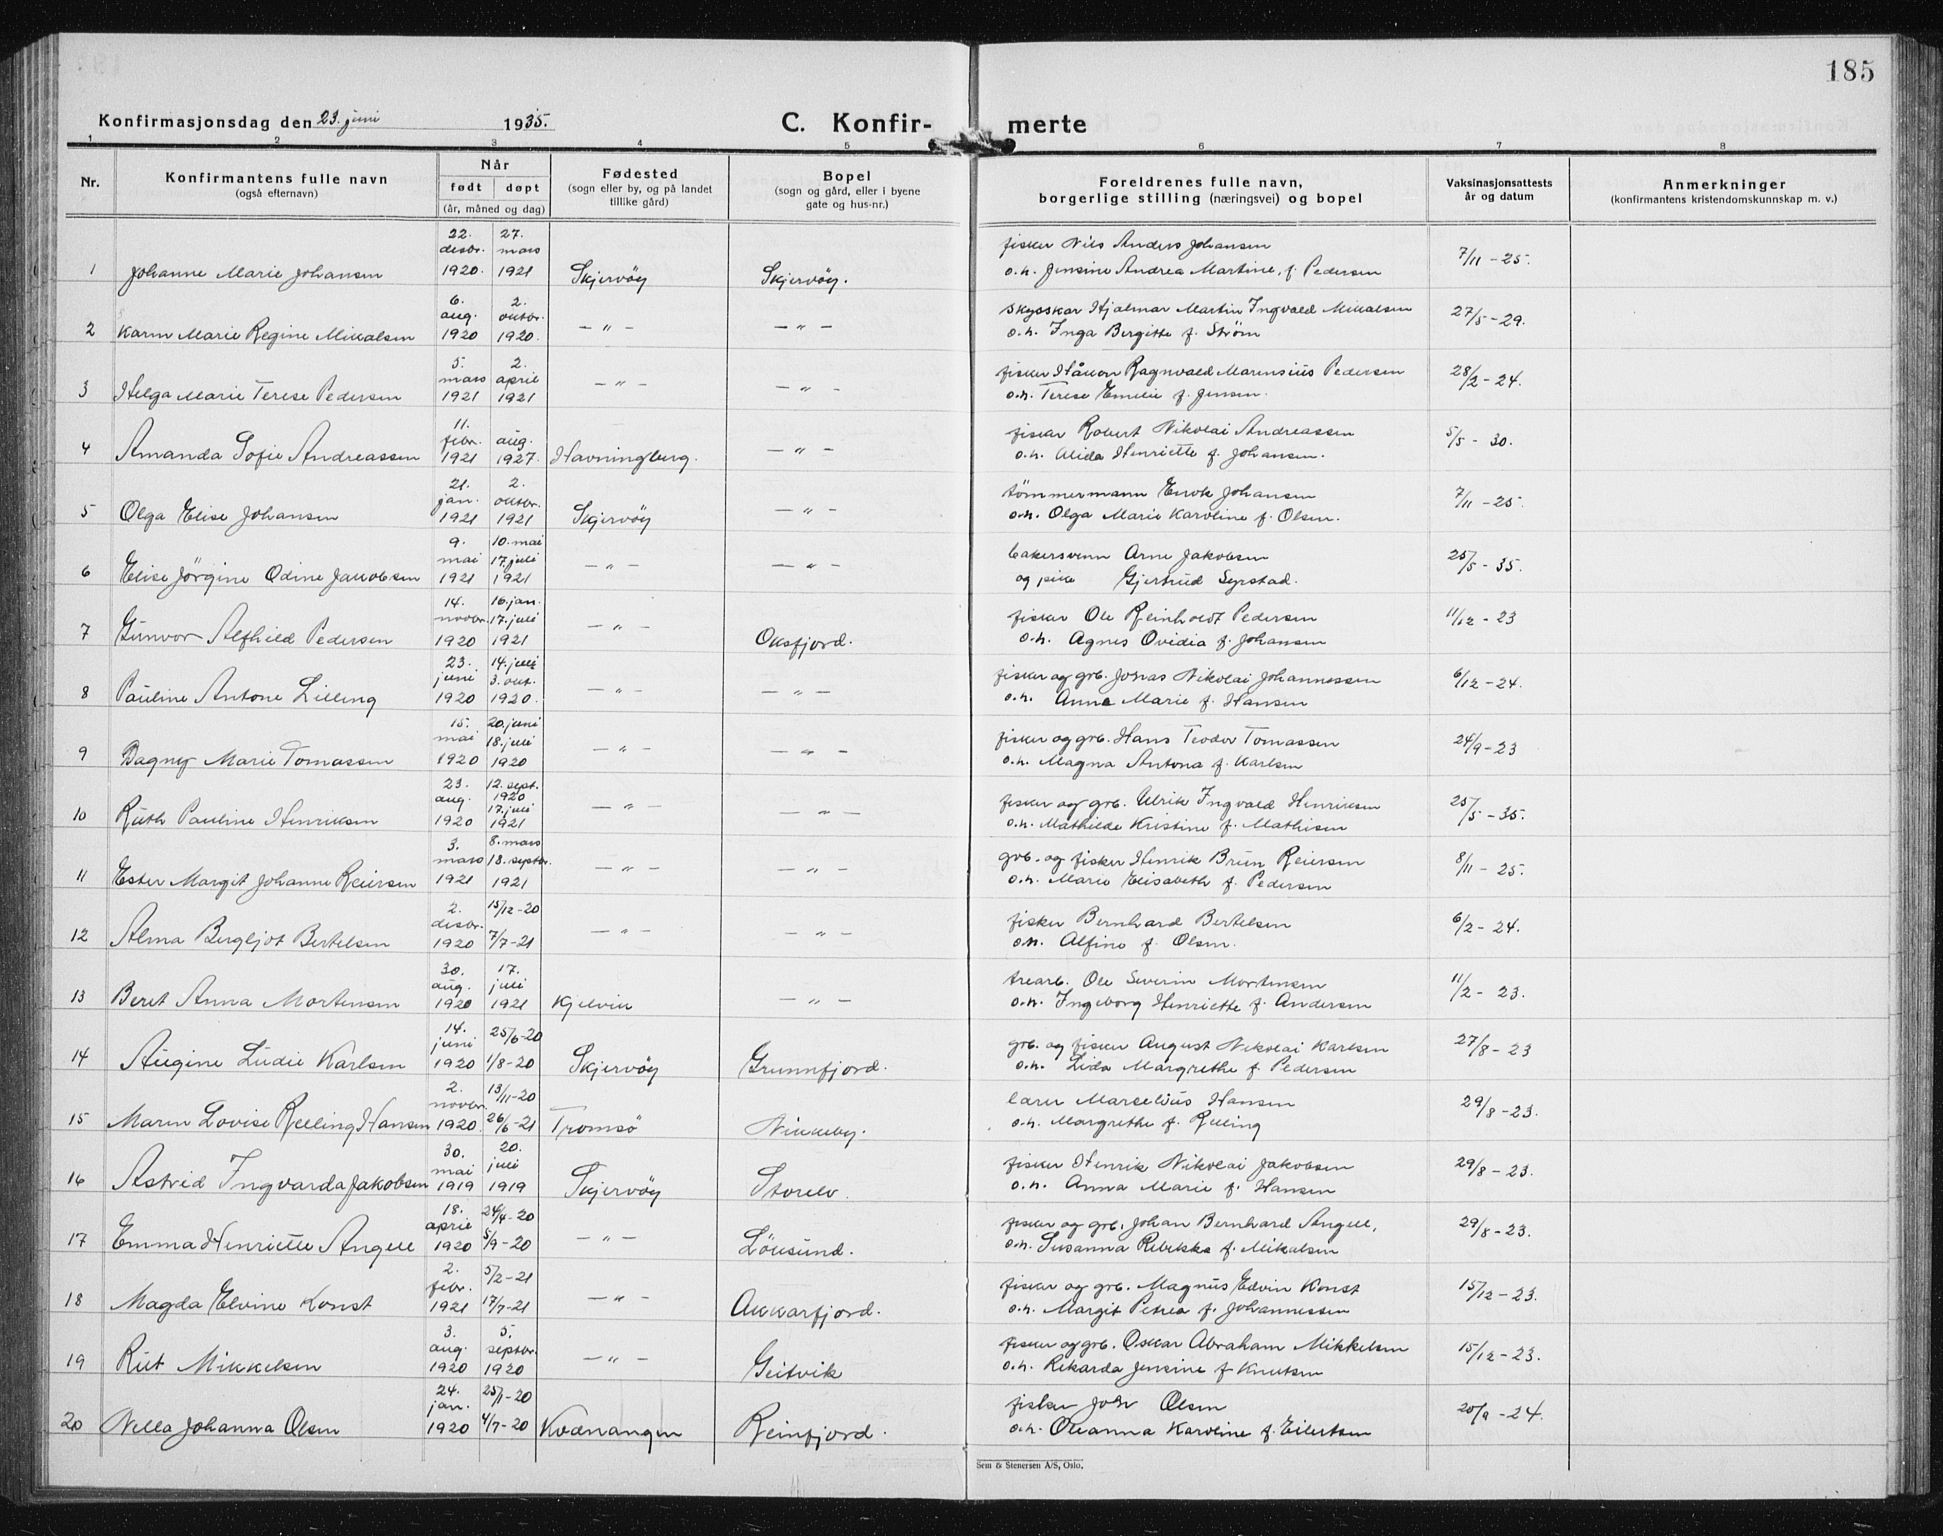 185
Konfirmasjonsdag den 23. juni 1935.
C. Konfir- merte
1 2 3 4 5 6 7 8
Nr.
Konfirmantens fulle navn
(også efternavn)
Når
født døpt
(år, måned og dag)
Fødested
(sogn eller by, og på landet
tillike gård)
Bopel
(sogn og gård, eller i byene
gate og hus-nr.)
Foreldrenes fulle navn,
borgerlige stilling (næringsvei) og bopel
Vaksinasjonsattests
år og datum
Anmerkninger
(konfirmantens kristendomskunnskap m. v.)
22. 27.
desbr. mars fisker Nils Anders Johansen 7/11 - 25.
1 Johanne Marie Johansen 1920. 1921 Skjervöy Skjervöy. o.h. Jensine Andrea Martine, f. Pedersen
6. 2.
aug. oktbr. skysskar Hjalmar Martin Ingvald Mikalsen 27/5 - 29.
2 Karin Marie Regine Mikalsen 1920 1920. - " - - " - o.h. Inga Bergitte f. Strøm
5. 2.
mars april - " - - " - fisker Håkon Ragnvald Marensius Pedersen 28/2 - 24.
3 Helga Marie Terese Pedersen 1921 1921 o.h. Terese Emilie f. Jensen.
11.
febr. aug. fisker Robert Nikolai Andreassen 5/5 - 30.
4 Amanda Sofie Andreassen 1921 1927. Havningberg. - " - o.h. Alida Henriette f. Johansen.
21. 2.
jan. oktbr. tömmermann Enok Johansen 7/11 - 25.
5 Olga Elise Johansen 1921 1921 Skjervöy - " - o.h. Olga Marie Karoline f. Olsen.
9. 10. mai
mai 17. juli bakersvenn Arne Jakobsen 25/5 - 35.
6 Elise Jörgine Odine Jakobsen 1921 1921 - " - - " - og pike Gjertrud Syrstad.
14. 16. jan.
novbr. 17. juli - " - fisker Ole Reinholdt Pedersen 11/12 - 23
7 Gunvor Alfhild Pedersen 1920 1921 Oksfjord. o.h. Agnes Ovidia f. Johansen
23. 14. juli
juni 3. okt. - " - - " - fisker og grb. Jonas Nikolai Johannessen 6/12 - 24.
8 Pauline Antone Lilling 1920 1920. o.h. Anna Marie f. Hansen
15. 20. juni
mai 18. juli - " - - " - fisker og grb. Hans Teodor Tomassen 24/9 - 23
9 Dagny Marie Tomassen 1920 1920 o.h. Magna Antona f. Karlsen
23. 12. sept.
aug. 1920
17. juli - " - - " - fisker og grb. Ulrik Ingvald Henriksen 25/5 - 35.
10 Ruth Pauline Henriksen 1920 1921 o.h. Mathilde Kristine f. Mathisen
3. 8. mars
mars 18. septbr. - " - - " - grb. og fisker Henrik Brun Reiersen 8/11 - 25.
11 Ester Margit Johanne Reiersen 1921 1921 o.h. Marie Elisabeth f. Pedersen
2. 15/12 - 20
desbr. fisker Bernhard Bertelsen 6/2 - 24.
12 Alma Bergljot Bertelsen 1920 7/7 - 21 - " - - " - o.h. Alfine f. Olsen.
30. 17.
aug. juli trearb. Ole Severin Mortensen 11/2 - 23.
13 Beret Anna Mortensen 1920 1921 Kjelvik - " - o.h. Ingeborg Henriette f. Andersen
14. 25/6 - 20
juni grb. og fisker August Nikolai Karlsen 27/8 - 23
14 Augine Ludie Karlsen 1920 1/8 - 20 Skjervöy Grunnfjord. o.h. Lida Margrethe f. Pedersen
2. 13/11 - 20
novbr. lærer Marselius Hansen 29/8 - 23.
15 Maren Lovise Relling Hansen 1920 26/6 - 21 Tromsö Nikkeby. o.h. Margrethe f. Relling
30. 20.
mai juli fisker Henrik Nikolai Jakobsen 29/8 - 23.
16 Astrid Ingvarda Jakobsen 1919 1919 Skjervöy Storelv. o.h. Anna Marie f. Hansen
18. 24/4 - 20
april fisker og grb. Johan Bernhard Angell, 29/8 - 23.
17 Emma Henriette Angell 1920 5/9 - 20 - " - Löksund. o.h. Susanna Rebekka f. Mikalsen
2. 5/2 - 21
febr. fisker og grb. Magnus Edvin Konst 15/12 - 23.
18 Magda Elvine Konst 1921 17/7 - 21 - " - Akkarfjord. o.h. Margit Petrea f. Johannessen
3. 5.
aug. septbr. fisker og grb. Oskar Abraham Mikkelsen 15/12 - 23.
19 Rut Mikkelsen 1920 1920 - " - Geitvik o.h. Rikarda Jensine f. Knutsen
24. 25/1 - 20
jan. fisker Johr Olsen 20/9 - 24.
20 Nella Johanna Olsen 1920 4/7 - 20 Kvænangen Reinfjord. o.h. Oleanna Karoline f. Eilertsen
Sem & Stenersen A/S, Oslo.